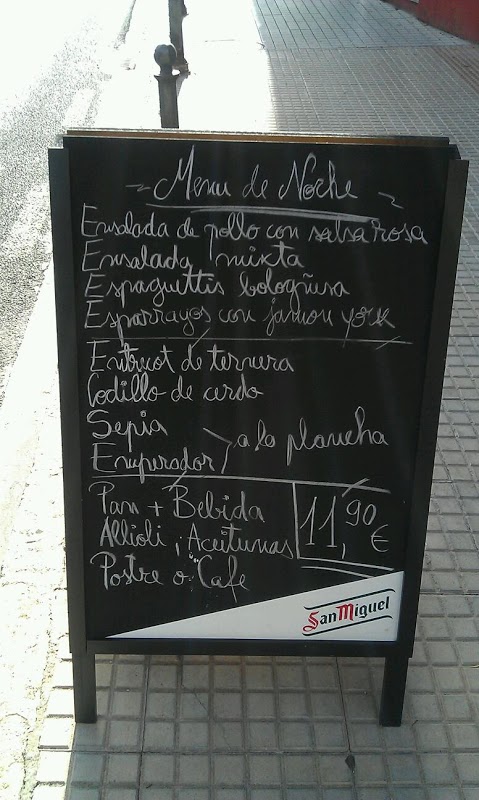 ~ Menu de Noche ~
Ensalada de pollo con salsa rosa
Ensalada mixta
Espaguttis bologñesa
Esparragos con jamon york
Entrecot de ternera
Codillo de cerdo
Sepia
Emperador } a la plancha
Pan + Bebida
Allioli, Aceitunas
Postre o Cafe
11,90 €
San Miguel